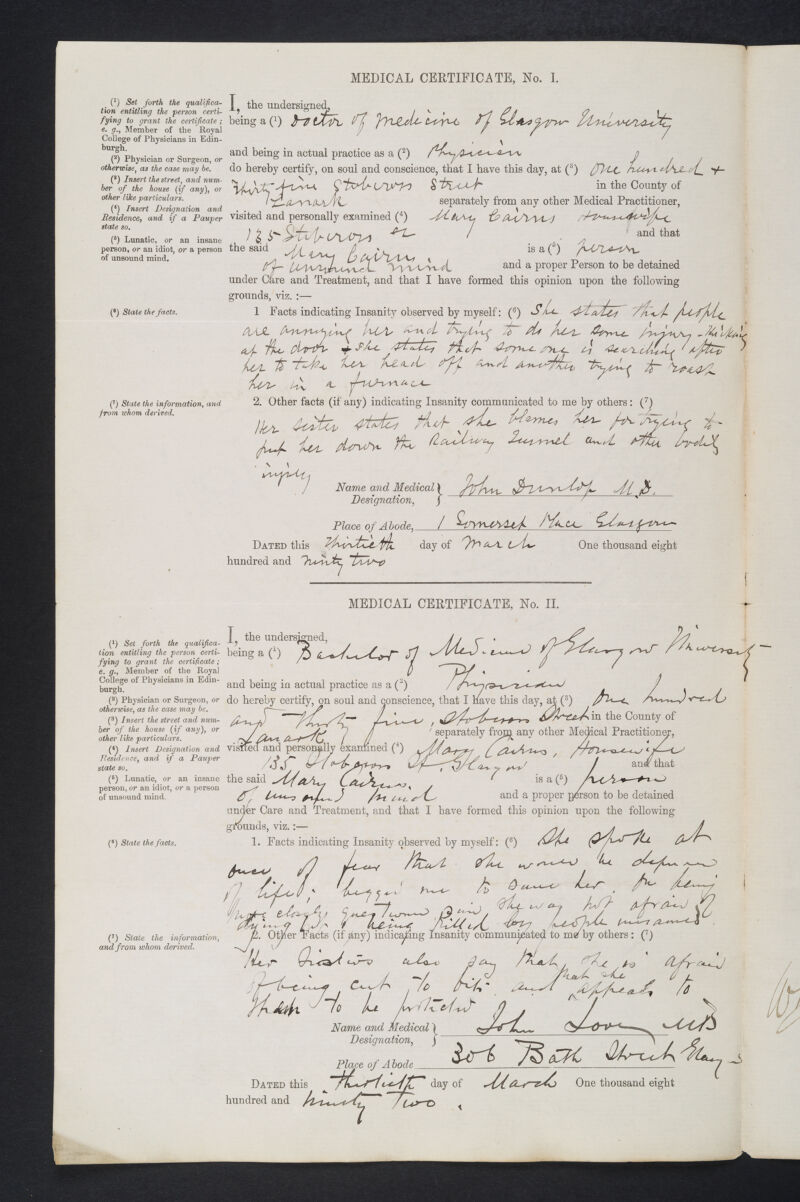 MEDICAL CERTIFICATE, No. I.
(¹) Set forth the qualifica-
tion entitling the person certi-
fying to grant the certificate;
e. g., Member of the Royal
College of Physicians in Edin-
burgh.
(²) Physician or Surgeon, or
otherwise, as the case may be.
(³) Insert the street, and num-
ber of the house (if any), or
other like particulars.
(⁴) Insert Designation and
Residence, and if a Pauper
state so.
(⁵) Lunatic, or an insane
person, or an idiot, or a person
of unsound mind.
I, the undersigned,
being a (¹) Doctor of Medicine of Glasgow University
and being in actual practice as a (²) Physician
do hereby certify, on soul and conscience, that I have this day, at (³) One hundred +
Thirty five Stobcross Street in the County of
Lanark separately from any other Medical Practitioner,
visited and personally examined (⁴) Mary Cairns Housewife
135 Stobcross St and that
the said Mary Cairns is a (⁵) person
of unsound mind and a proper Person to be detained
under Care and Treatment, and that I have formed this opinion upon the following
grounds, viz. :—
(⁶) State the facts.
1 Facts indicating Insanity observed by myself: (⁶) She states that people
are annoying her and trying to do her some injury -
at the door + she states that some one is searching after
her to take her head off and another trying to roast
her in a furnace
(⁷) State the information, and
from whom derived.
2. Other facts (if any) indicating Insanity communicated to me by others: (⁷)
Her sister states that she blames her for trying to
put her down the Railway Tunnel and other bodily
injury
Name and Medical
Designation, } John Dunlop M.D.
Place of Abode, 1 Somerset Place Glasgow
DATED this Thirtieth day of March One thousand eight
hundred and ninety two
MEDICAL CERTIFICATE, No. II.
(¹) Set forth the qualifica-
tion entitling the person certi-
fying to grant the certificate;
e. g., Member of the Royal
College of Physicians in Edin-
burgh.
(²) Physician or Surgeon, or
otherwise, as the case may be.
(³) Insert the street and num-
ber of the house (if any), or
other like particulars.
(⁴) Insert Designation and
Residence, and if a Pauper
state so.
(⁵) Lunatic, or an insane
person, or an idiot, or a person
of unsound mind.
I, the undersigned,
being a (¹) Bachelor of Medicine of Glasgow University
and being in actual practice as a (²) Physician
do hereby certify, on soul and conscience, that I have this day, at (³) One hundred
and Thirty five, Stobcross Street in the County of
Lanark separately from any other Medical Practitioner,
visited and personally examined (⁴) Mary Cairns, Housewife
135 Stobcross St, Glasgow and that
the said Mary Cairns. is a (⁵) person
of unsound mind and a proper person to be detained
under Care and Treatment, and that I have formed this opinion upon the following
grounds, viz. :—
(⁶) State the facts.
1. Facts indicating Insanity observed by myself: (⁶) She spoke at
once of fear that she would be deprived
of life; begged me to save her. On being
more closely questioned said she was not afraid of
dying but being killed by people unnamed
(⁷) State the information,
and from whom derived.
2. Other Facts (if any) indicating Insanity communicated to me by others: (⁷)
Her Sisters also say that she is afraid
of being cut to bits and that she appeals to
them to be protected
Name and Medical
Designation, } John Love MB
Place of Abode 306 Bath Street
DATED this thirtieth day of March One thousand eight
hundred and ninety two.